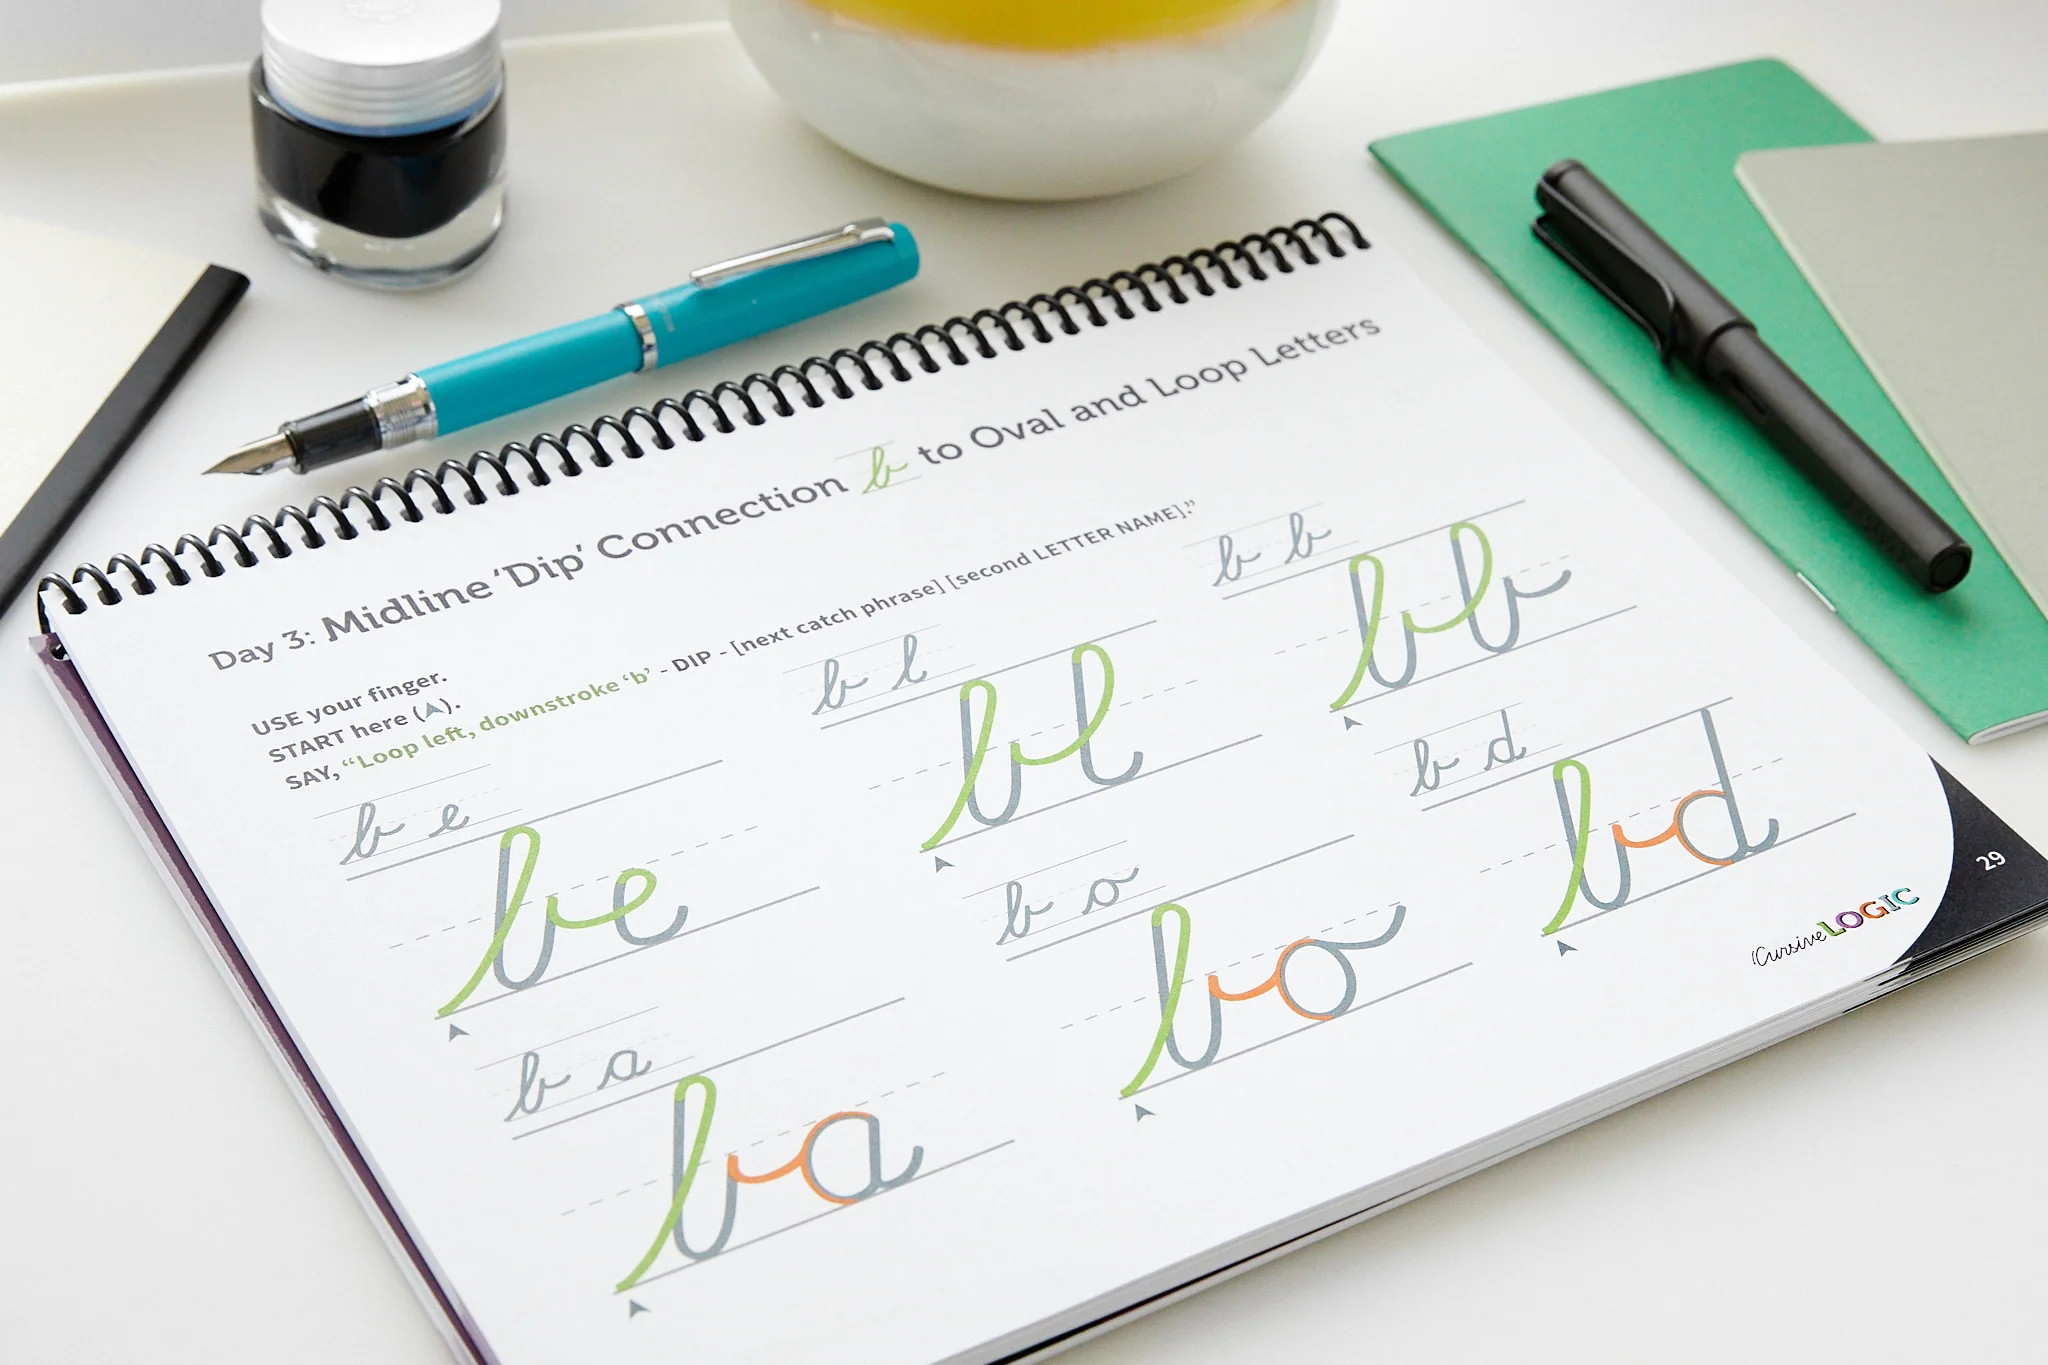 Day 3: Midline 'Dip' Connection b to Oval and Loop Letters
USE your finger.
START here (⮝).
SAY, “Loop left, downstroke ‘b’ - DIP - [next catch phrase] [second LETTER NAME].”
b e
be
b l
bl
b b
bb
b a
ba
b o
bo
b d
bd
CursiveLOGIC
29